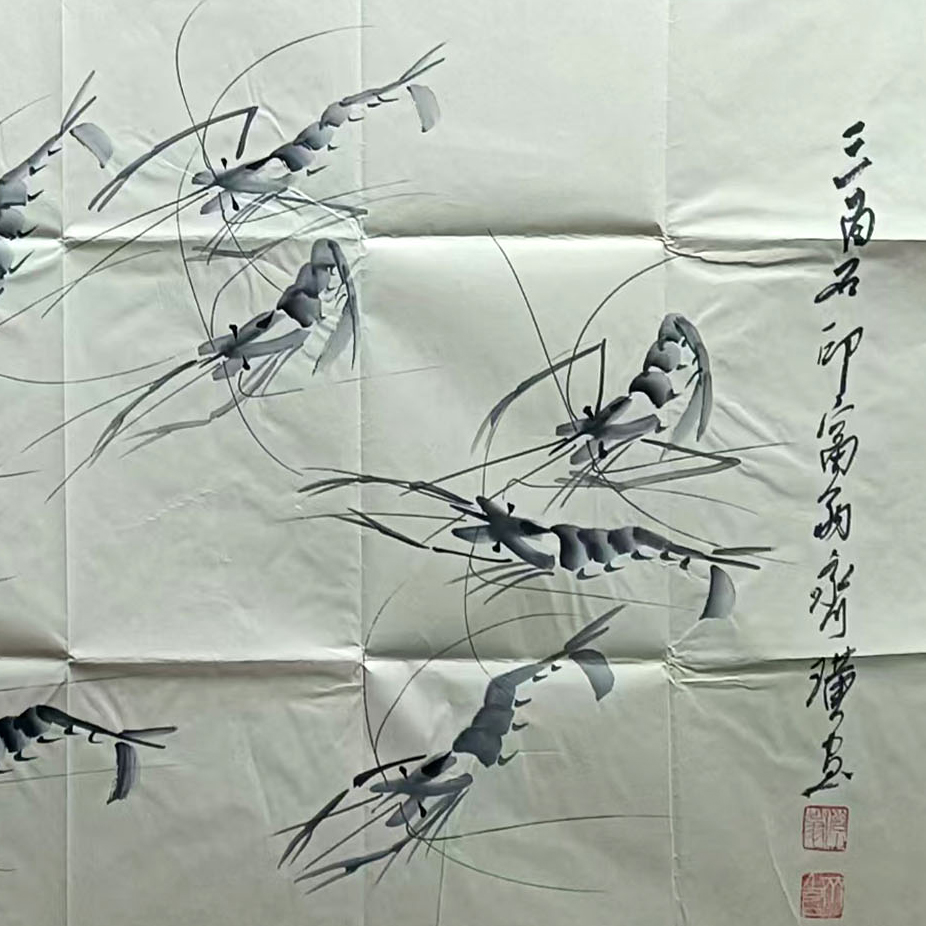 三百石印富翁齊璜畫